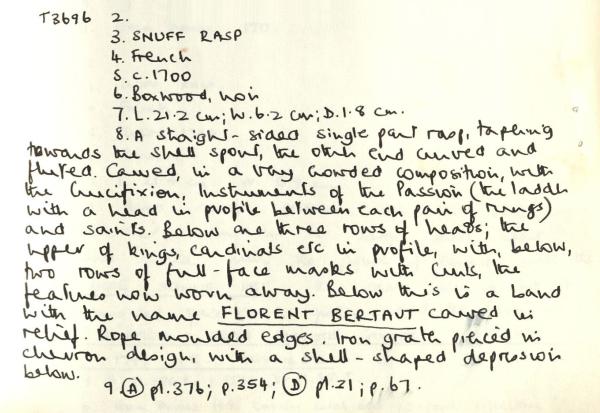 T3696 2.
3. SNUFF RASP
4. French
5. c. 1700
6. Boxwood, iron
7. L. 21.2 cm; W. 6.2 cm; D. 1.8 cm.
8. A straight-sided single part rasp, tapering
towards the shell spout, the other end curved and
fluted. Carved, in a very crowded composition, with
the Crucifixion, Instruments of the Passion (the ladder
with a head in profile between each pair of rungs)
and saints. Below are three rows of heads; the
upper of kings, cardinals etc in profile, with, below,
two rows of full-face masks with curls, the
features now worn away. Below this is a band
with the name FLORENT BERTAUT carved in
relief. Rope moulded edges. Iron grater pierced in
chevron design, with a shell-shaped depression
below.
9. (A) pl. 376; p. 354; (D) pl. 21; p. 67.